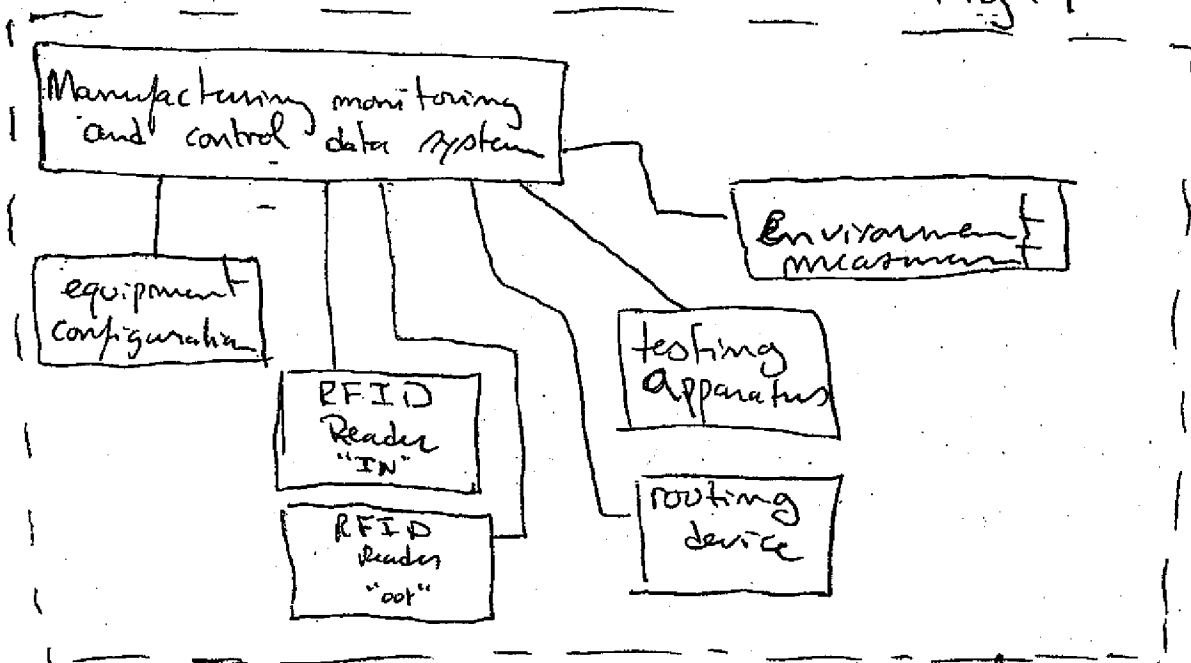 Manufacturing monitoring
and control data system
Environment
measment
equipment
configuration
testing
apparatus
RFID
Reader
"IN"
routing
device
RFID
Reader
"out"